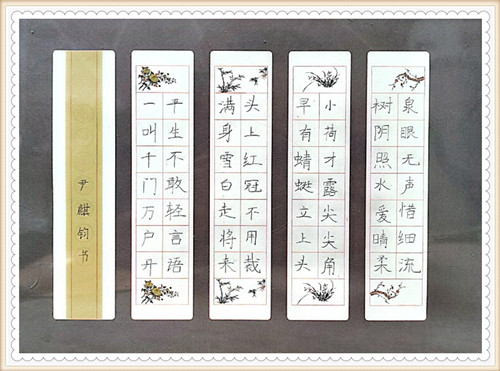 泉眼无声惜细流
树阴照水爱晴柔
小荷才露尖尖角
早有蜻蜓立上头
头上红冠不用裁
满身雪白走将来
平生不敢轻言语
一叫千门万户开
尹麒钧书